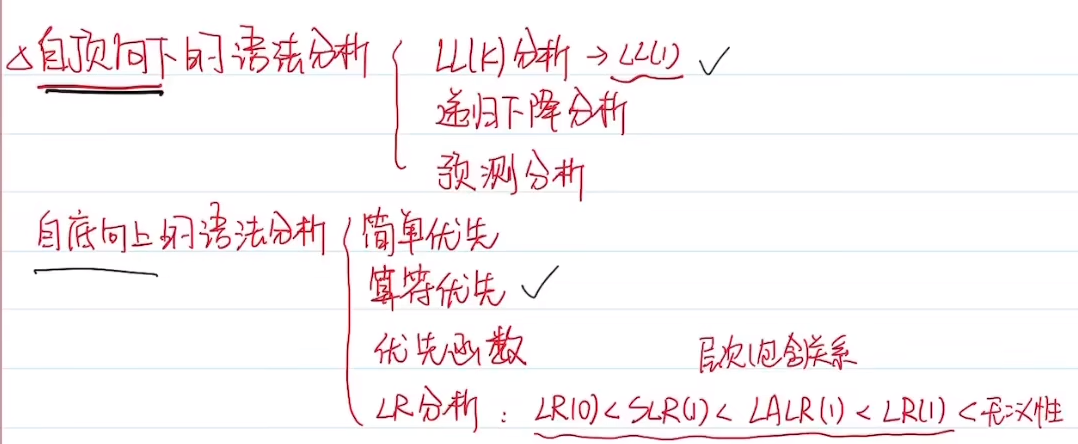 △自顶向下的语法分析 { LL(k)分析 → LL(1) ✓
递归下降分析
预测分析
自底向上的语法分析 { 简单优先
算符优先 ✓
优先函数
层次(包含)关系
LR分析：LR(0)<SLR(1)<LALR(1)<LR(1)<无二义性